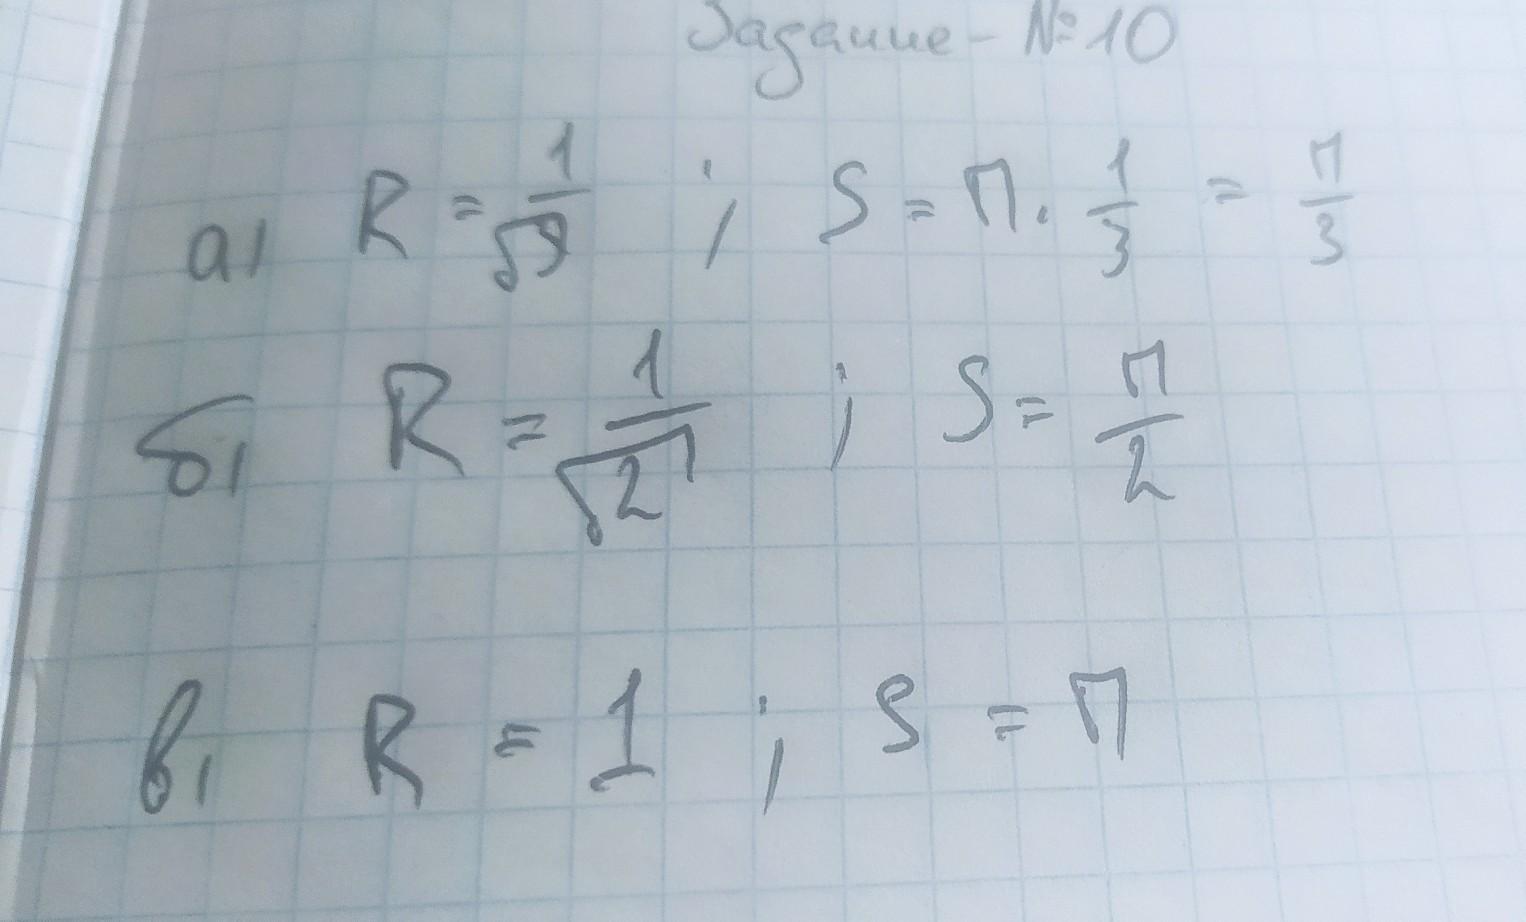 Задание - № 10
а) R = 1/√3 ; S = π · 1/3 = π/3
б) R = 1/√2 ; S = π/2
в) R = 1 ; S = π